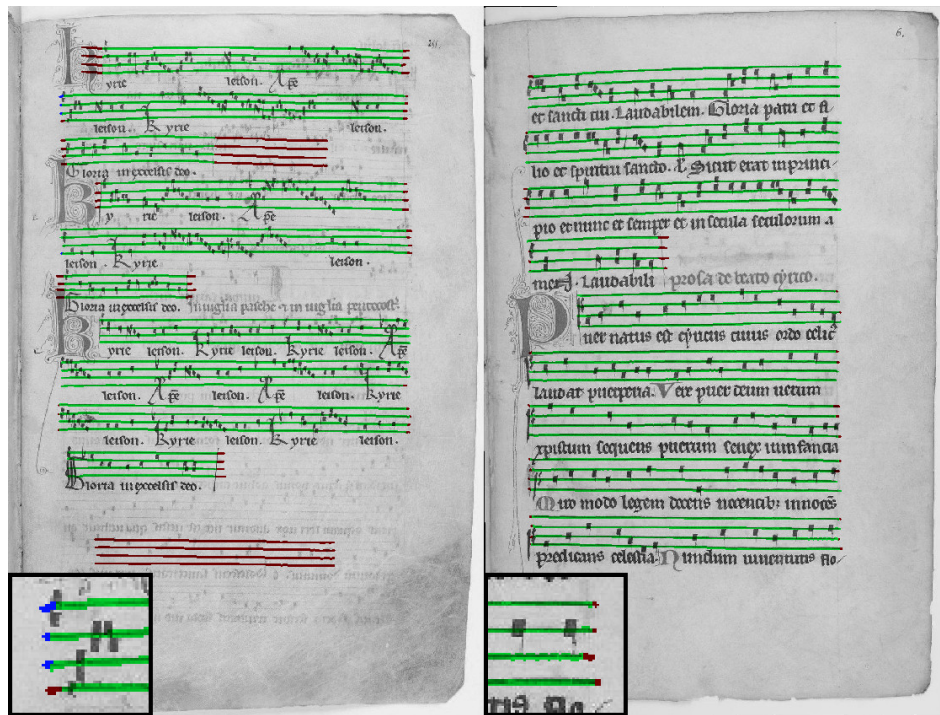 Kyrie leison. Xp̄e
leison. Kyrie leison.
Gloria in excelsis deo.
Kyrie leison. Xp̄e
leison. Kyrie leison.
Gloria in excelsis deo. In vigilia pasche
Kyrie leison. Kyrie leison. Kyrie leison. Xp̄e
leison. Xp̄e leison. Xp̄e leison. Kyrie
leison. Kyrie leison. Kyrie leison.
Gloria in excelsis deo.
6.
et sancti tui. Laudabilem. Gloria patri et fi-
lio et spiritui sancto. Sicut erat in princi-
pio et nunc et semper et in secula seculorum a
men. Laudabili prosa de beato cyrico.
Puer natus est cyricus cuius ordo celic̄
laudat puerperia. Vere puer deum verum
xpistum sequens puerum senex in infancia
Miro modo legem docens innocēs
predicans celestia. Nundum iuventutis flo-